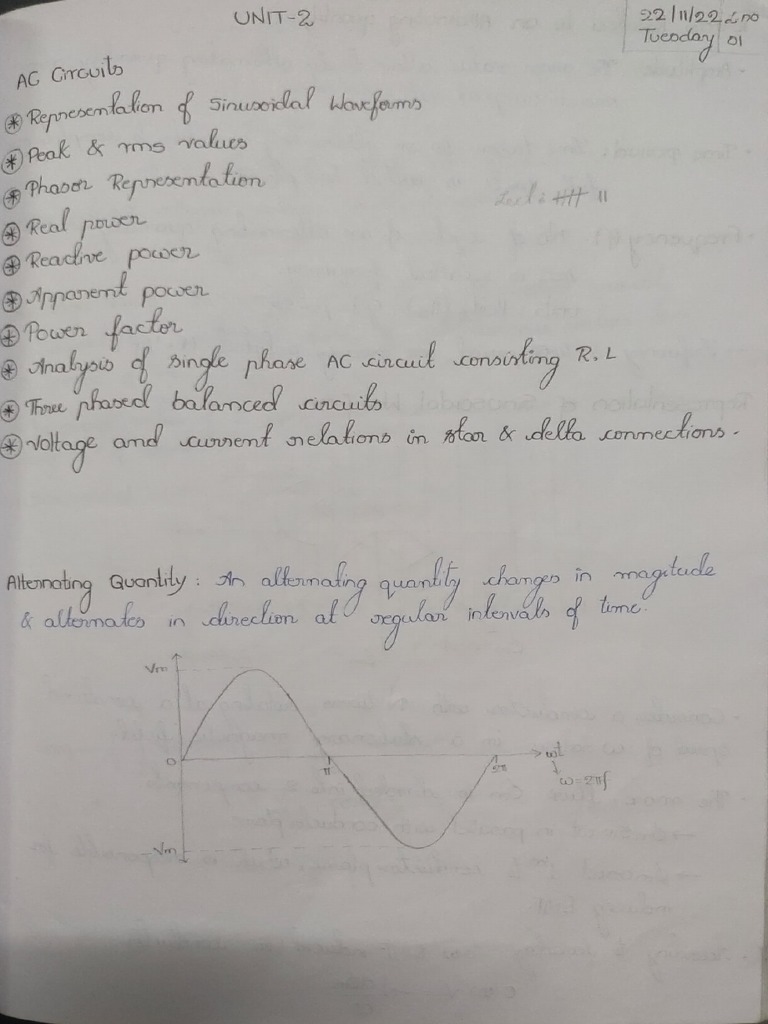 UNIT-2
22/11/22
Tuesday 01
AC Circuits
* Representation of Sinusoidal Waveforms
* Peak & rms values
* Phasor Representation
* Real power
* Reactive power
* Apparent power
* Power factor
* Analysis of single phase AC circuit consisting R, L
* Three phased balanced circuits
* Voltage and current relations in star & delta connections.
Alternating Quantity: An alternating quantity changes in magitude
& alternates in direction at regular intervals of time.
Vm
0
π
2π
ωt
ω=2πf
-Vm